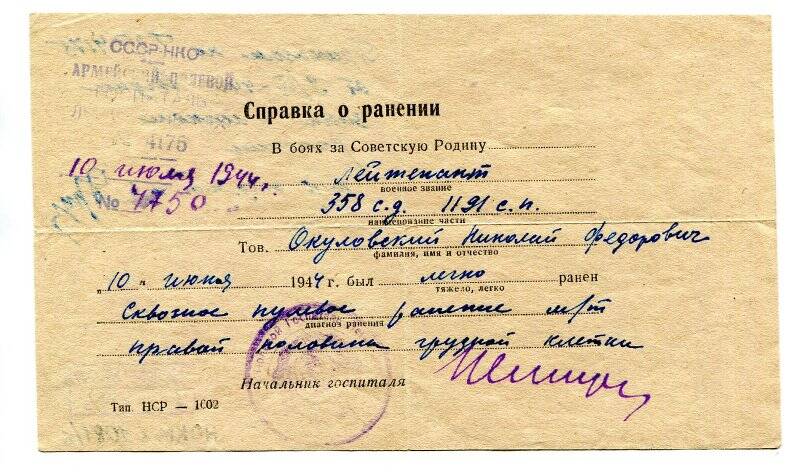 СССР-НКО
АРМЕЙСКИЙ ПОЛЕВОЙ
4176
Справка о ранении
В боях за Советскую Родину
10 июля 1944 г.
№ 4750
лейтенант
военное звание
358 с.д. 1191 с.п.
наименование части
Тов. Окуловский Николай Федорович
фамилия, имя и отчество
„10 " июня 1944 г. был легко ранен
тяжело, легко
Сквозное пулевое ранение м/т
диагноз ранения
правой половины грудной клетки
Начальник госпиталя
Тип. НСР — 1002